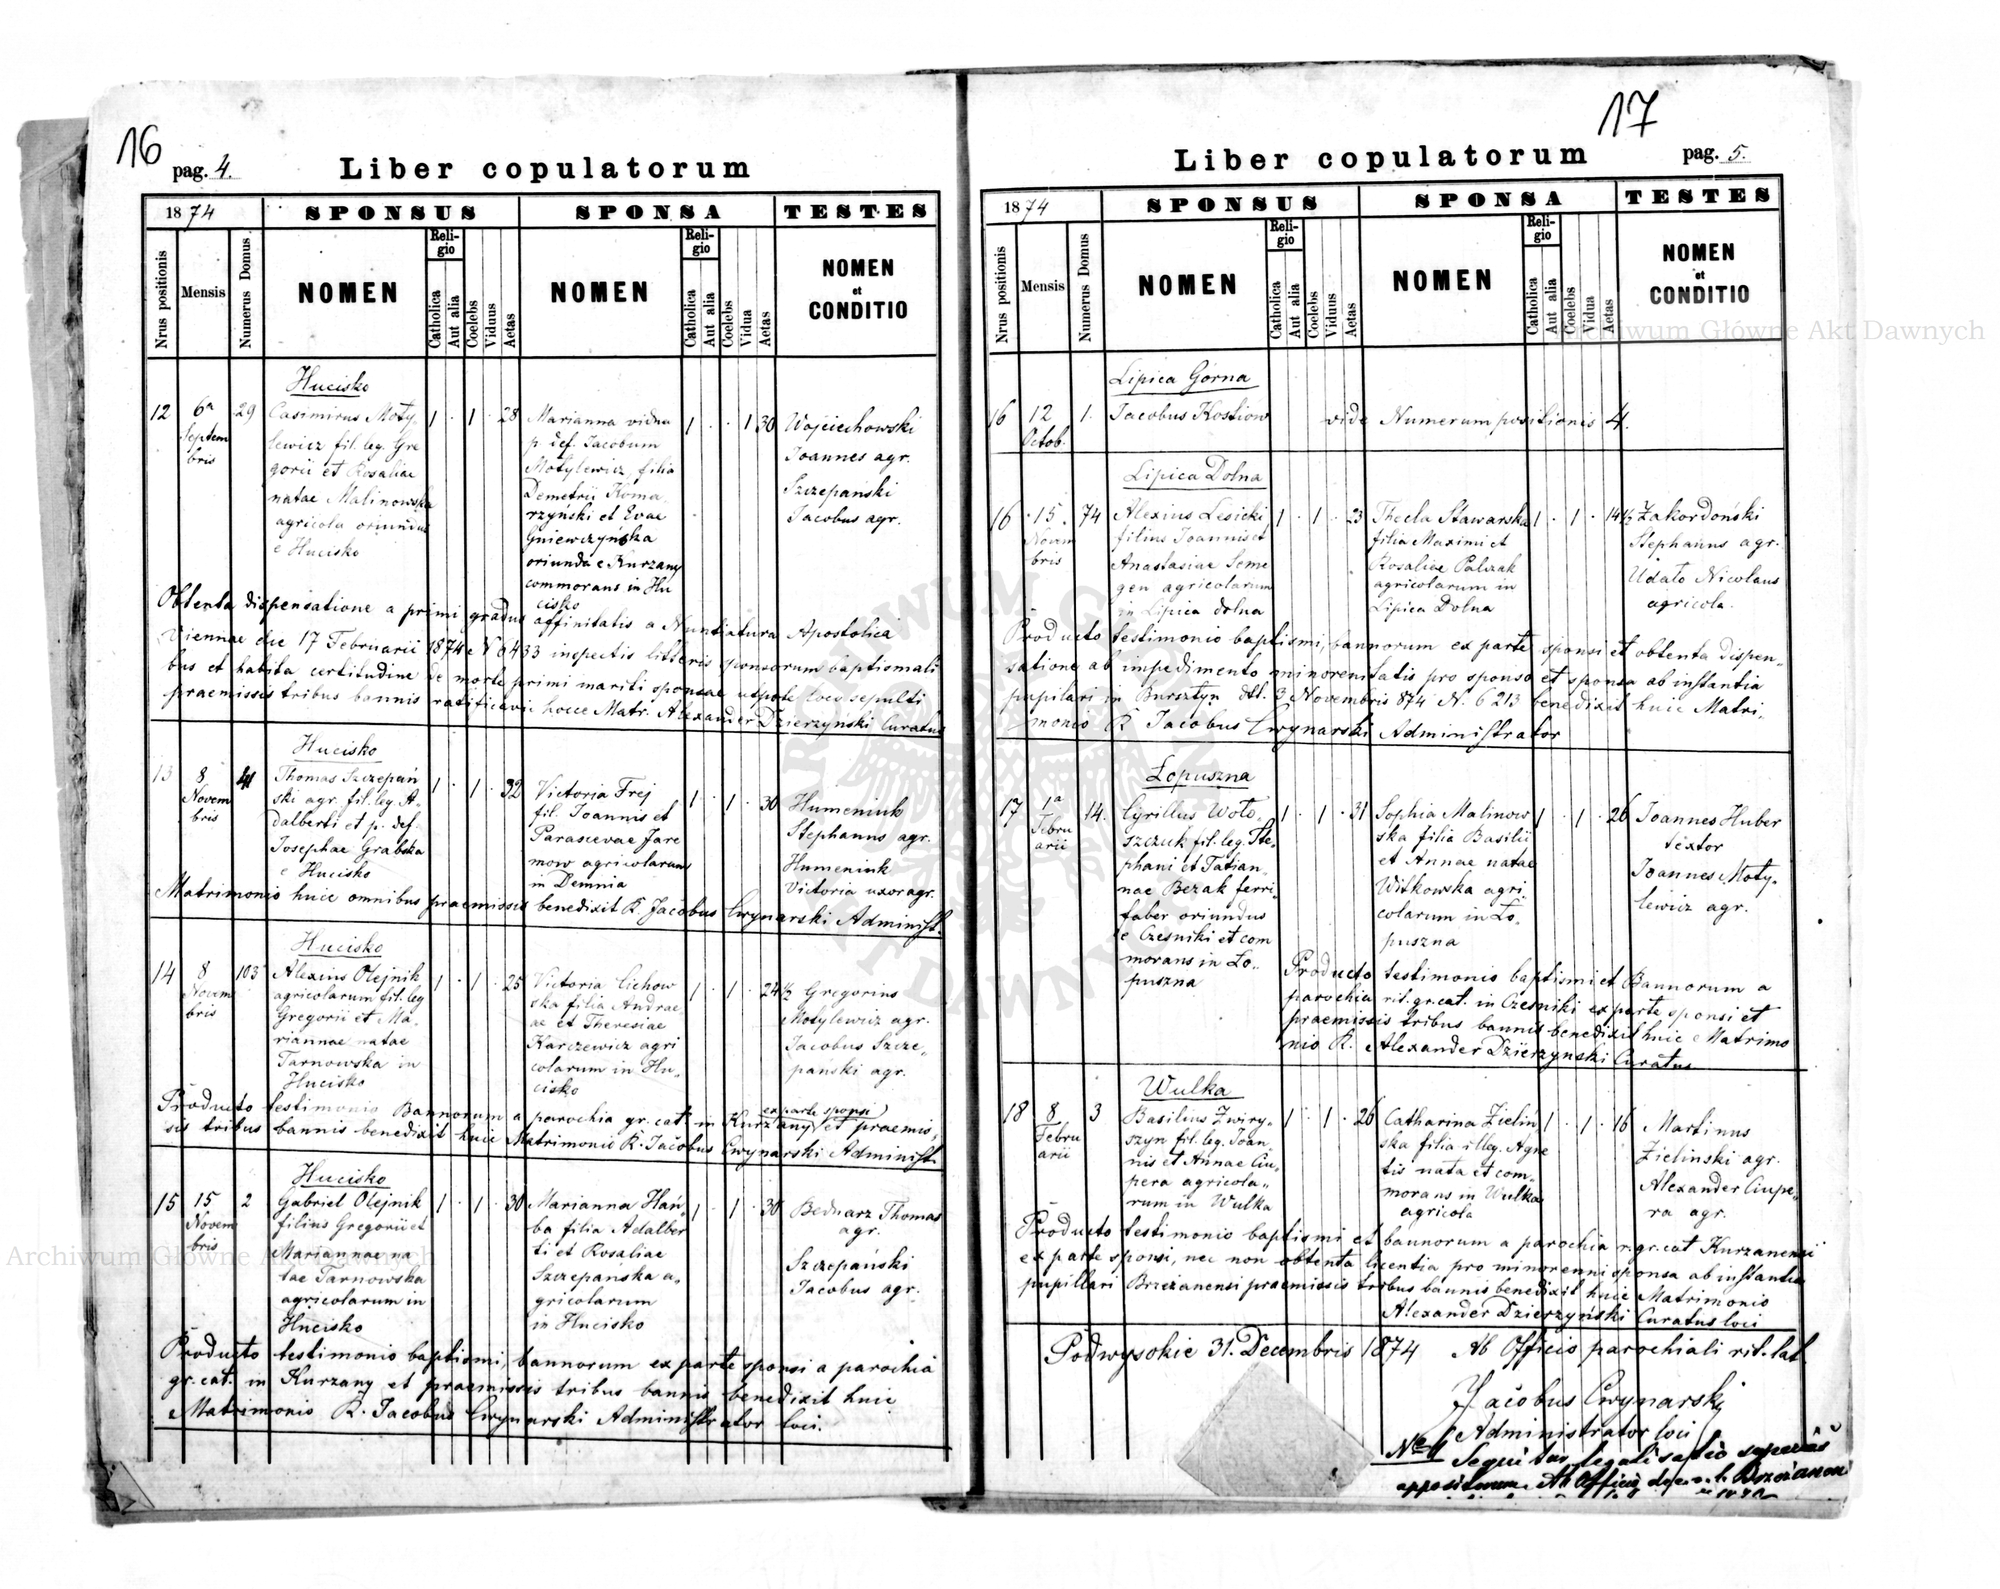 16
pag. 4.
Liber copulatorum
1874
SPONSUS
SPONSA
TESTES
Nrus positionis
Mensis
Numerus Domus
NOMEN
Religio
Catholica
Aut alia
Coelebs
Viduus
Aetas
NOMEN
Religio
Catholica
Aut alia
Coelebs
Vidua
Aetas
NOMEN
et
CONDITIO
Hucisko
12
6a
Septem
bris
29
Casimirus Moty,
lewicz fil. leg. Gre
gorii et Rosaliae
natae Malinowska
agricola oriundus
e Hucisko
1 . 1 . 28
Marianna vidua
p. def. Jacobum
Motylewicz, filia
Demetrii Koma,
rzyński et Evae
Gniewczyńska
oriunda e Kurzany
commorans in Hu
cisko
1 . . 1 30
Wojciechowski
Joannes agr.
Szczepański
Jacobus agr.
Obtenta dispensatione a primi gradus affinitatis a Nuntiatura Apostolica
Viennae die 17 Februarii 1874 e N 6433 inspectis litteris sponsorum baptismali
bus et habita certitudine de morte primi mariti sponsae utpote loco sepulti
praemissis tribus bannis ratificavit hocce Matr. Alexander Dzierzynski Curatus
Hucisko
13
8
Novem
bris
41
Thomas Szczepań
ski agr. fil. leg A,
dalberti et p. def.
Josephae Grabska
e Hucisko
1 . 1 . 32
Victoria Frej
fil. Joannis et
Parascevae Jare
mow agricolarum
in Demnia
1 . 1 . 30
Humeniuk
Stephanus agr.
Humeniuk
Victoria uxor agr.
Matrimonio huic omnibus praemissis benedixit R. Jacobus Cwynarski Administ.
Hucisko
14
8
Novem
bris
103
Alexius Olejnik
agricolarum fil. leg
Gregorii et Ma,
riannae natae
Tarnowska in
Hucisko
1 . 1 . 25
Victoria Cichow
ska filia Andrae
ae et Theresiae
Karczewicz agri
colarum in Hu,
cisko
1 . 1 . 24½
Gregorius
Motylewicz agr.
Jacobus Szcze,,
panski agr.
ex parte sponsi
Producto testimonio Bannorum a parochia gr. cat. in Kurzany et praemis,
sis tribus bannis benedixit huic Matrimonio R. Jacobus Cwynarski Administ.
Hucisko
15
15
Novem
bris
2
Gabriel Olejnik
filius Gregorii et
Mariannae na
tae Tarnowska
agricolarum in
Hucisko
1 . 1 . 30
Marianna Hań,
ba filia Adalber
ti et Rosaliae
Szczepańska a,
gricolarum
in Hucisko
1 . 1 . 30
Bednarz Thomas
agr.
Szczepański
Jacobus agr.
Producto testimonio baptismi, bannorum ex parte sponsi a parochia
gr. cat. in Kurzany et praemissis tribus bannis benedixit huic
Matrimonio R. Jacobus Cwynarski Administrator loci.
17
Liber copulatorum
pag. 5.
1874
SPONSUS
SPONSA
TESTES
Nrus positionis
Mensis
Numerus Domus
NOMEN
Religio
Catholica
Aut alia
Coelebs
Viduus
Aetas
NOMEN
Religio
Catholica
Aut alia
Coelebs
Vidua
Aetas
NOMEN
et
CONDITIO
Lipica Górna
16
12
Octob.
1.
Jacobus Kostiów
vide Numerum positionis 4.
Lipica Dolna
16
15.
Novem
bris
74
Alexius Lesicki
filius Joannis et
Anastasiae Seme
gen agricolarum
in Lipica dolna
1 . 1 . 23
Thecla Stawarska
filia Maximi et
Rosaliae Palczak
agricolarum in
Lipica Dolna
1 . 1 . 14½
Zakordoński
Stephanus agr.
Udato Nicolaus
agricola.
Producto testimonio baptismi, bannorum ex parte sponsi et obtenta dispen,,
satione ab impedimento minorenitatis pro sponso et sponsa ab instantia
pupilari in Bursztyn dtt. 3 Novembris 874 N. 6213 benedixit huic Matri,
monio R Jacobus Cwynarski Administrator
Łopuszna
17
1a
Febru
arii
14.
Cyrillus Woło,
szczuk fil. leg. Ste,
phani et Tatian,
nae Bezak ferri,
faber oriundus
e Czesniki et com
morans in Ło,,
puszna
1 . 1 . 31
Sophia Malinow
ska filia Basilii
et Annae natae
Witkowska agri
colarum in Ło,
puszna
1 . 1 . 26
Joannes Huber
textor
Joannes Moty,
lewicz agr.
Producto testimonio baptismi et Bannorum a
parochia rit. gr. cat. in Czesniki ex parte sponsi et
praemissis tribus bannis benedixit huic Matrimo
nio R. Alexander Dzierzynski Curatus
Wulka
18
8
Febru
arii
3
Basilius Zwiry,
szyn fil. leg. Joan,
nis et Annae Ciu,
pera agricola,
rum in Wulka
1 . 1 . 26
Catharina Zieliń
ska filia illeg. Agne
tis nata et com,
morans in Wulka
agricola
1 . 1 . 16
Martinus
Zielinski agr.
Alexander Ciupe,
ra agr.
Producto testimonio baptismi et bannorum a parochia r. gr. cat Kurzanensi
ex parte sponsi, nec non obtenta licentia pro minorenni sponsa ab instantia
pupillari Brzezanensi praemissis tribus bannis benedixit huic Matrimonio
Alexander Dzierzyński Curatus loci
Podwysokie 31. Decembris 1874 Ab Officio parochiali rit. lat.
Jacobus Cwynarski
Administrator loci
Sequitur legalisatio
appositum. Ab Officio
Archiwum Główne Akt Dawnych
Archiwum Główne Akt Dawnych
ARCHIWUM GŁÓWNE AKT DAWNYCH